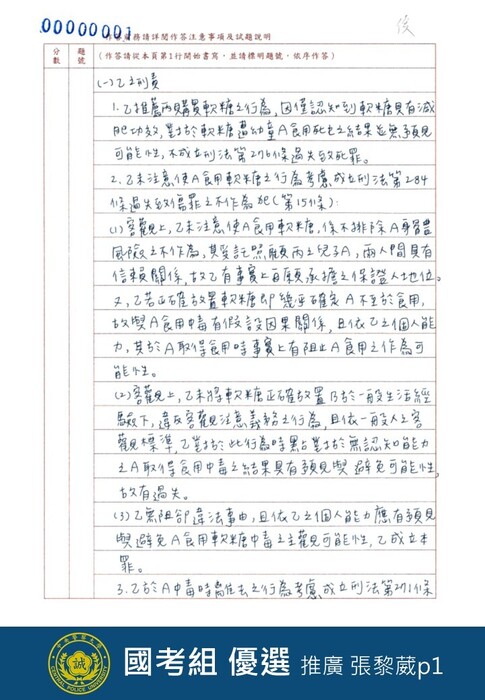 00000001
作答務請詳閱作答注意事項及試題說明
後
分數
題號
(作答請從本頁第1行開始書寫,並請標明題號,依序作答)
(一)乙之刑責
1.乙推薦丙購買軟糖之行為,因僅認知到軟糖具有減
肥功效,對於軟糖遭幼童A食用死亡之結果並無預見
可能性,不成立刑法第276條過失致死罪。
2.乙未注意使A食用軟糖之行為考慮成立刑法第284
條過失致傷罪之不作為犯(第15條):
(1)客觀上,乙未注意使A食用軟糖,係不排除A身體
風險之不作為,其受託照顧丙之兒子A,兩人間具有
信賴關係,故乙有事實上自願承擔之保證人地位。
又,乙若正確放置軟糖即幾乎確定A不至於食用,
故與A食用中毒有假設因果關係,且依乙之個人能
力,其於A取得食用時事實上有阻止A食用之作為可
能性。
(2)客觀上,乙未將軟糖正確放置乃於一般生活經
驗下,違反客觀注意義務之行為,且依一般人之客
觀標準,乙對於此行為時點對於無認知能力
之A取得食用中毒之結果具有預見與避免可能性,
故有過失。
(3)乙無阻卻違法事由,且依乙之個人能力應有預見
與避免A食用軟糖中毒之主觀可能性,乙成立本
罪。
3.乙於A中毒時離去之行為考慮成立刑法第271條
誠
CENTRAL POLICE UNIVERSITY
國考組 優選 推廣 張黎葳p1